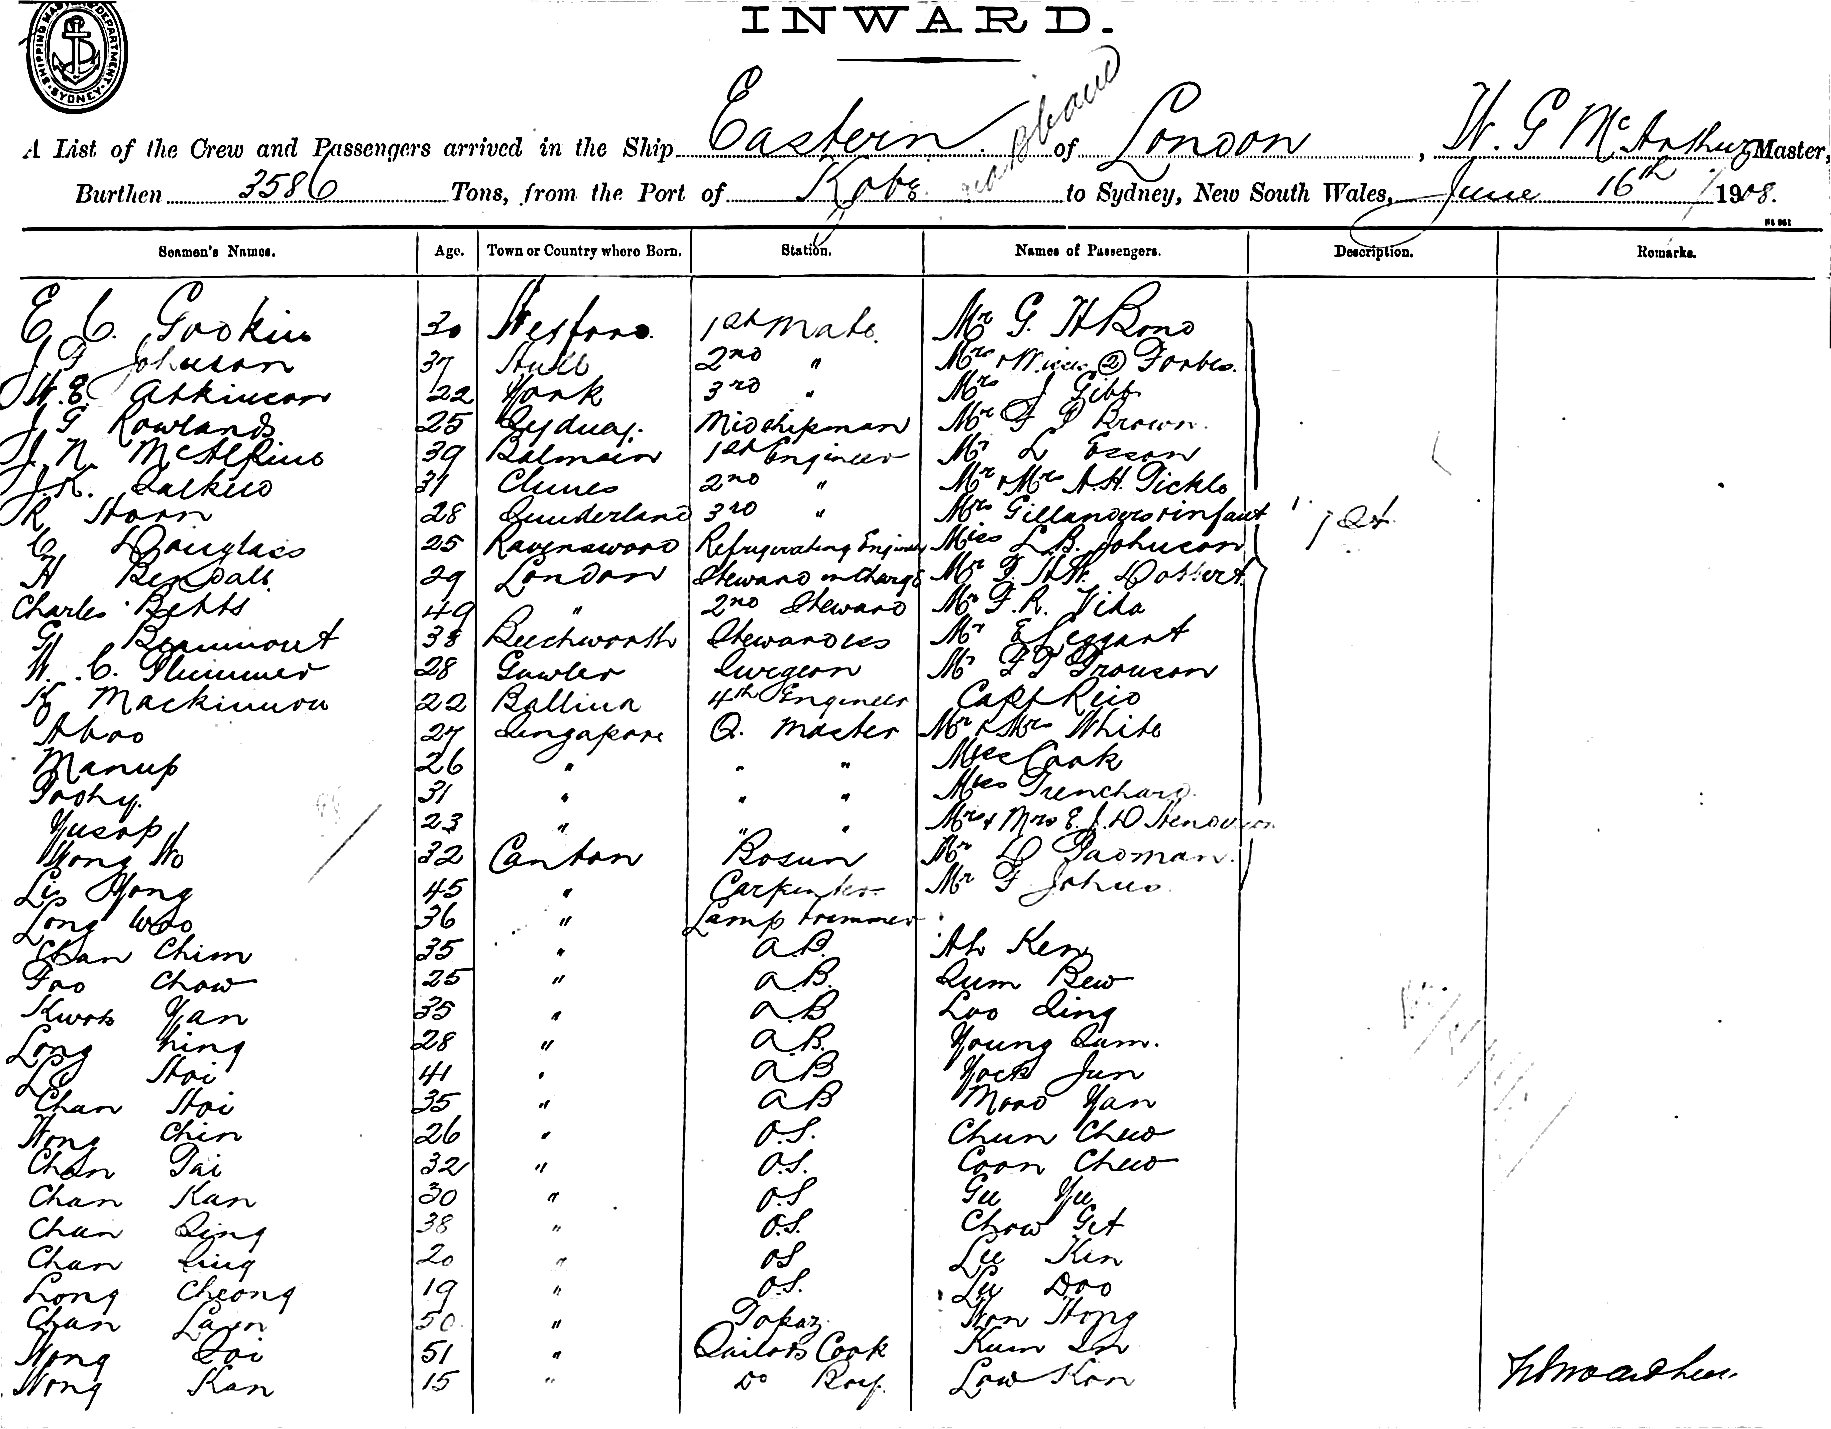 INWARD.
SHIPPING MASTER'S DEPARTMENT SYDNEY
A List of the Crew and Passengers arrived in the Ship Eastern of London, W. G McArthur Master,
Burthen 3586 Tons, from the Port of Kobe to Sydney, New South Wales, June 16th 1908.
Seamen's Names. Age. Town or Country where Born. Station. Names of Passengers. Description. Remarks.
E. C. Gookin 30 1st Mate. Mr G. H Bond
J F Johnson 37 Hull 2nd " Mrs Forbes.
W. E. Atkinson 22 York 3rd " Mrs J Gibb
J G Rowlands 25 Sydney. Midshipman Mr F P Brown.
J. N. McAlpine 39 Balmain 1st Engineer Mr L Esson
J. K. Calkled 31 Clunes 2nd " Mr & Mrs A. H. Tickle
R Horn 28 Sunderland 3rd " Mrs Gillanders & infant 1st
C. Douglass 25 Ravensword Refrigerating Engineer Miss L. B. Johnson
H Bendall 29 London Steward in Charge Mr F. H. W.
Charles Betts 49 " 2nd Steward Mr F. R. Vida
G Beaumont 38 Beechworth Stewardess Mr E Leggart
W. C. Plummer 28 Gawler Surgeon Mr F T Frouson
K Mackinnon 22 Ballina 4th Engineer Capt Reid
Aboo 27 Singapore Q. Master Mr & Mrs White
Manup 26 " " " Miss Cook
Poohy. 31 " " " Miss Trenchard.
Yusop 23 " " " Mr & Mrs E. J. D Henderson
Wong Wo 32 Canton Bosun Mr D Padman.
Lip Yong 45 " Carpenter Mr F Johns.
Long Woo 36 " Lamp trimmer
Chan Chim 35 " A.B. Ah Ken
Foo Chow 25 " A.B. Sum Bew
Kwok Yan 35 " A.B Loo Sing
Long Ning 28 " A.B. Young Sum.
Hoi 41 " A B Yock Jun
Chan Hoi 35 " A B Mord Yan
Wong Chin 26 " O.S. Chun Chew
Chan Tai 32 " O.S. Coon Chew
Chan Kan 30 " O.S Gee Yee
Chan Sing 38 " O.S. Chow Get
Chan Sing 20 " O S Lee Kin
Long Cheong 19 " O.S. Lee Doo
Chan Lam 50 " Topaz Hon Hong
Wong Soi 51 " Sailors Cook Kum
Wong Kan 15 " Do Boy. Low Kon